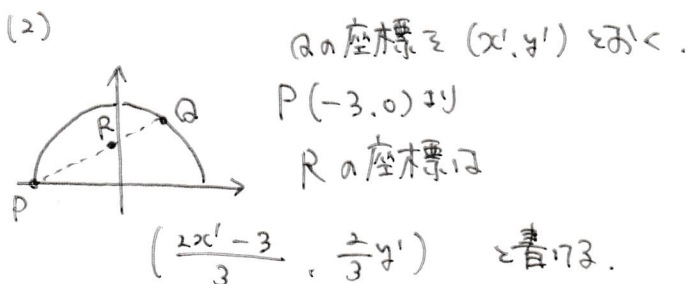 (2)
Qの座標を (x', y') とおく.
P(-3, 0) より
Rの座標は
(\frac{2x'-3}{3}, \frac{2}{3}y') と書ける.
R
Q
P